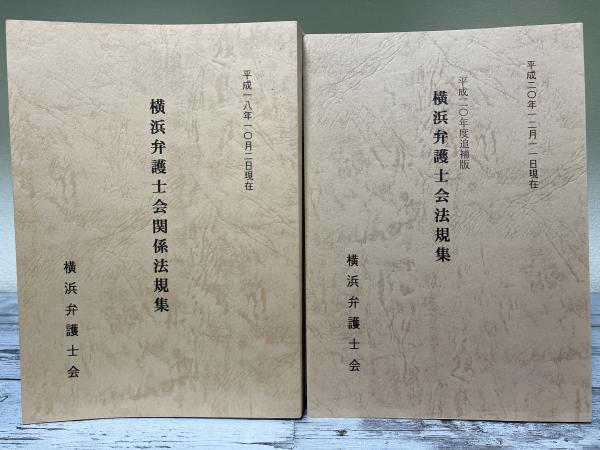 平成一八年一〇月二日現在
横浜弁護士会関係法規集
横浜弁護士会
平成二〇年一二月一一日現在
平成二〇年度追補版
横浜弁護士会法規集
横浜弁護士会